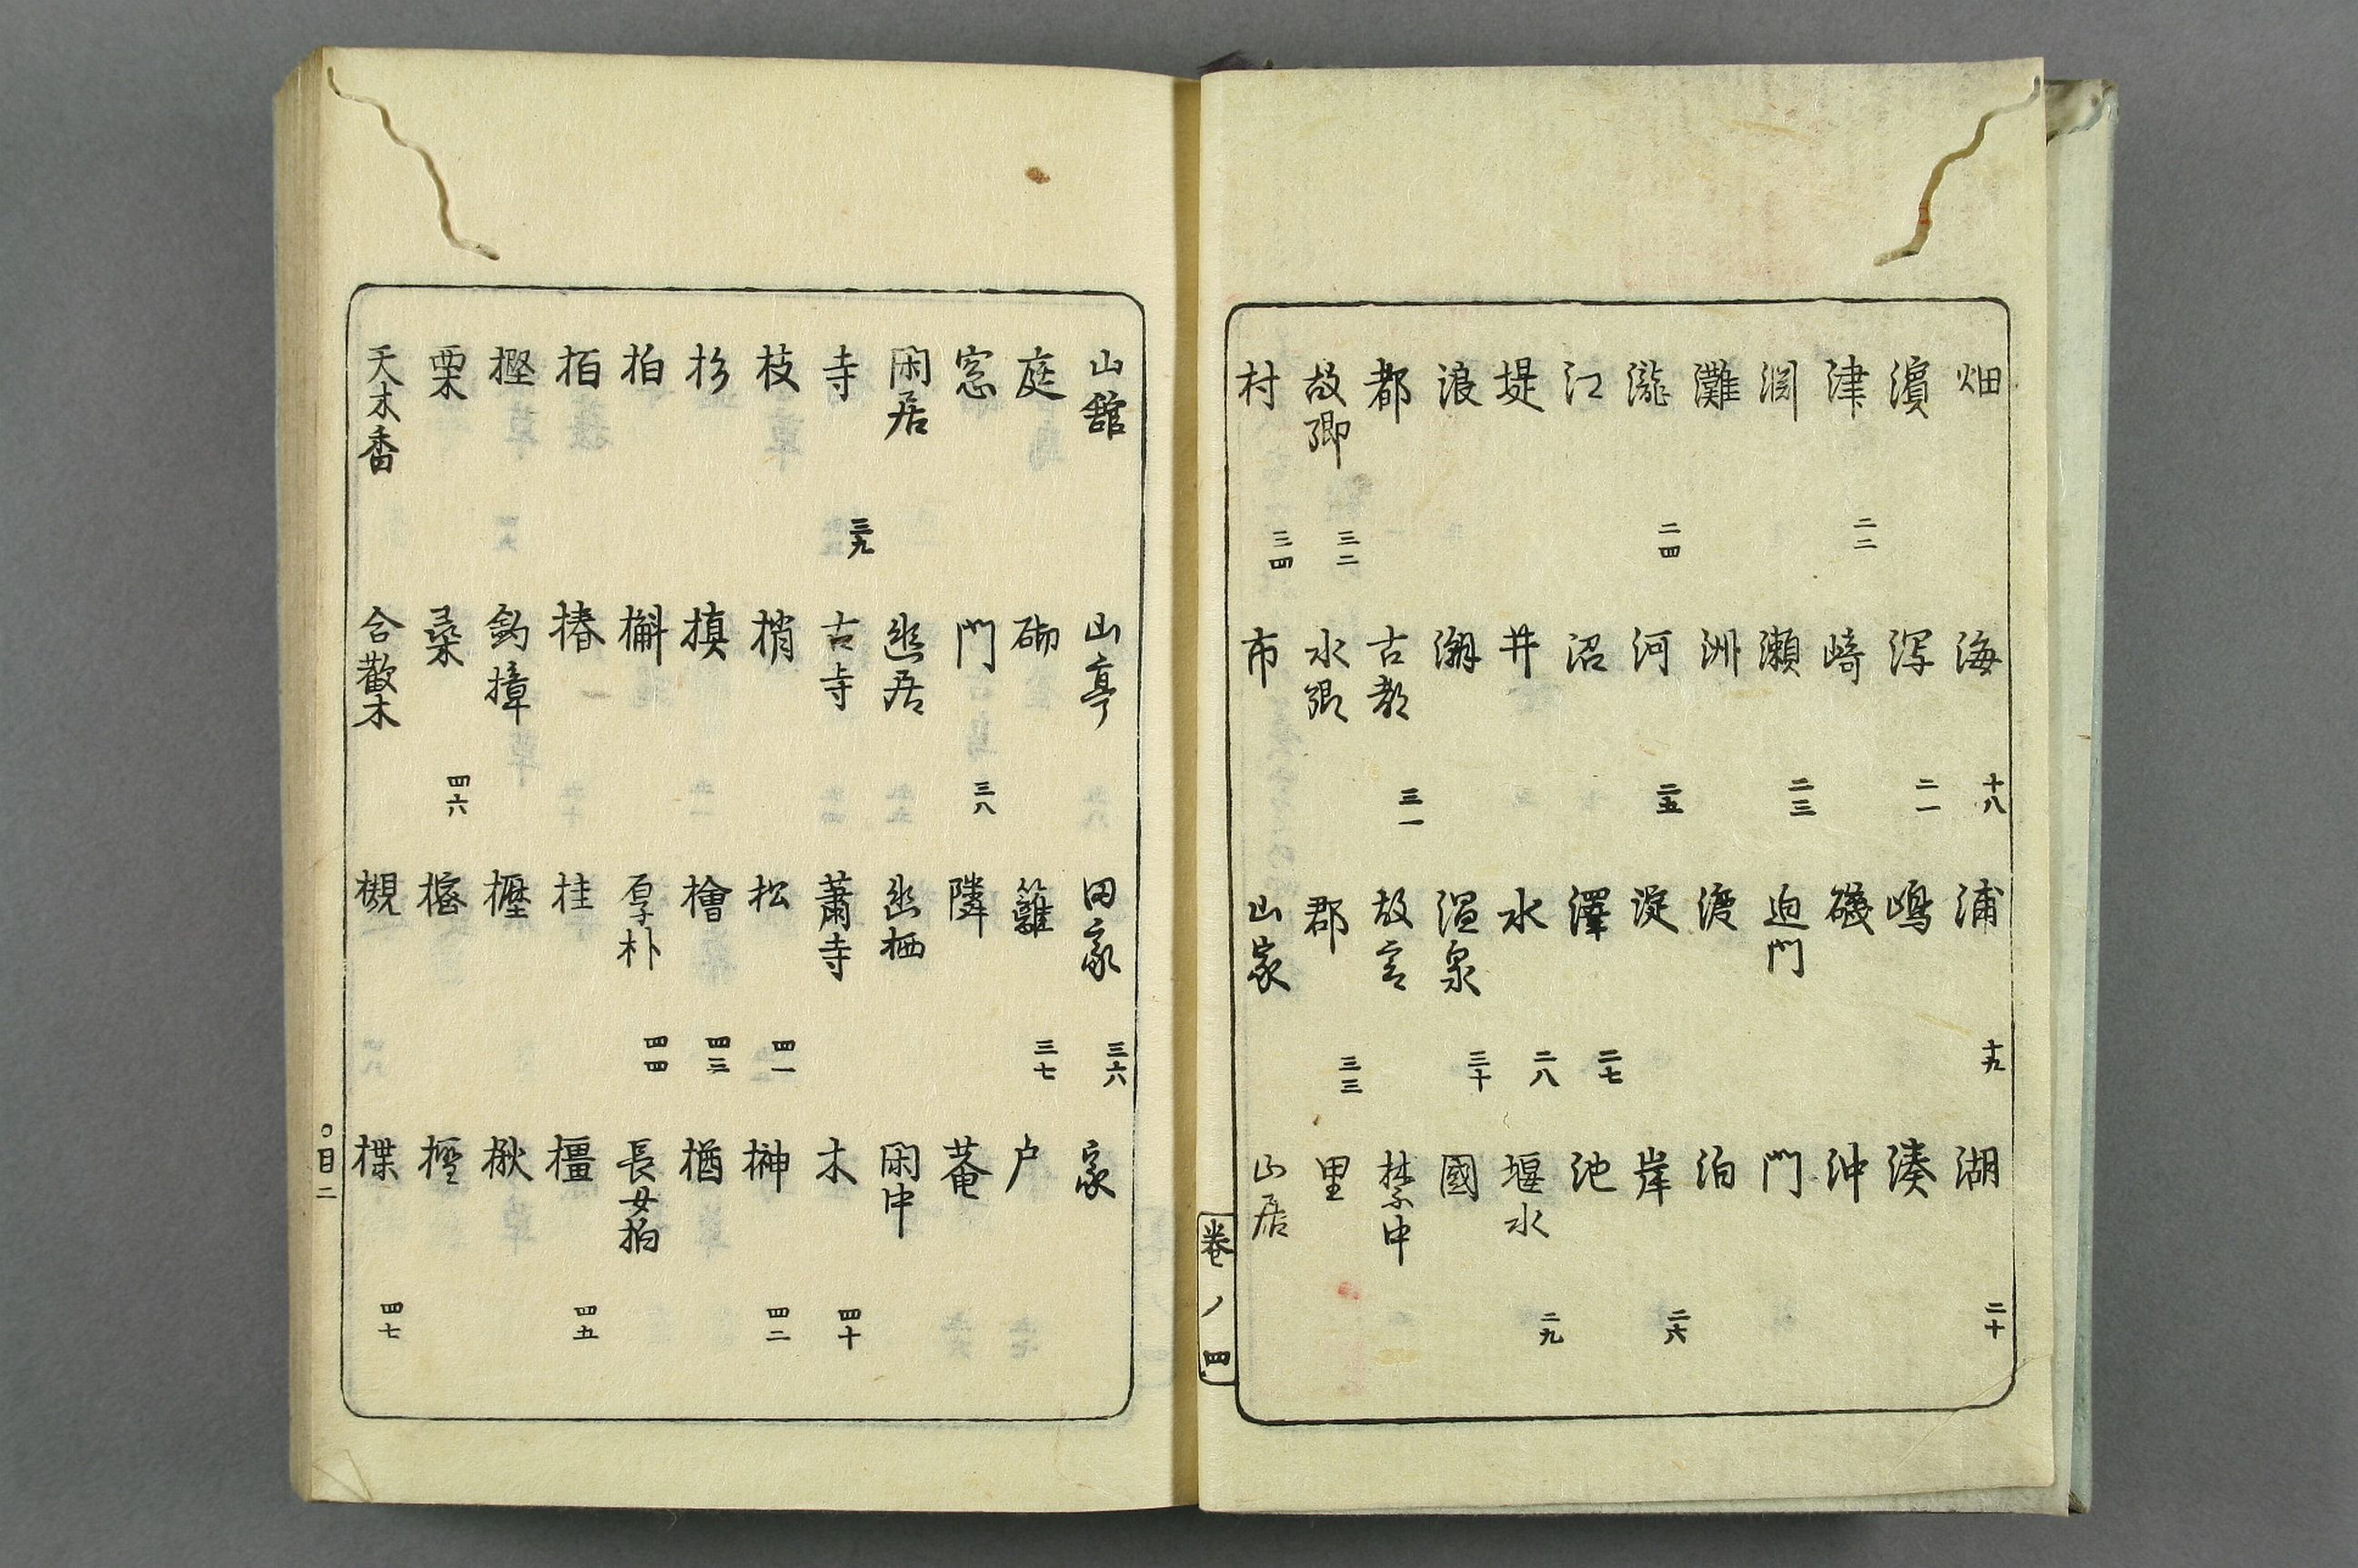 畑 海 十八 浦 十九 湖 二十
濱 潟 二一 嶋 湊
津 二二 崎 磯 沖
渕 瀬 二三 迫門 門
灘 洲 渡 泊
瀧 二四 河 二五 淀 岸 二六
江 沼 澤 二七 池
堤 井 水 二八 堰水 二九
浪 溯 温泉 三十 國
都 古都 三一 故宮 禁中
故郷 三二 水郷 郡 三三 里
村 三四 市 山家 山居
卷ノ四
山舘 山亭 田家 三六 家
庭 砌 籬 三七 戸
窓 門 三八 隣 菴
閑居 幽居 幽栖 閑中
寺 三九 古寺 蕭寺 木 四十
枝 梢 松 四一 榊 四二
杉 槙 檜 四三 楢
柏 槲 厚朴 四四 長女柏
栢 椿 桂 橿 四五
樫 釣樟 櫪 楸
栗 桑 四六 榁 檉
天木香 合歡木 槻 楪 四七
〇目二